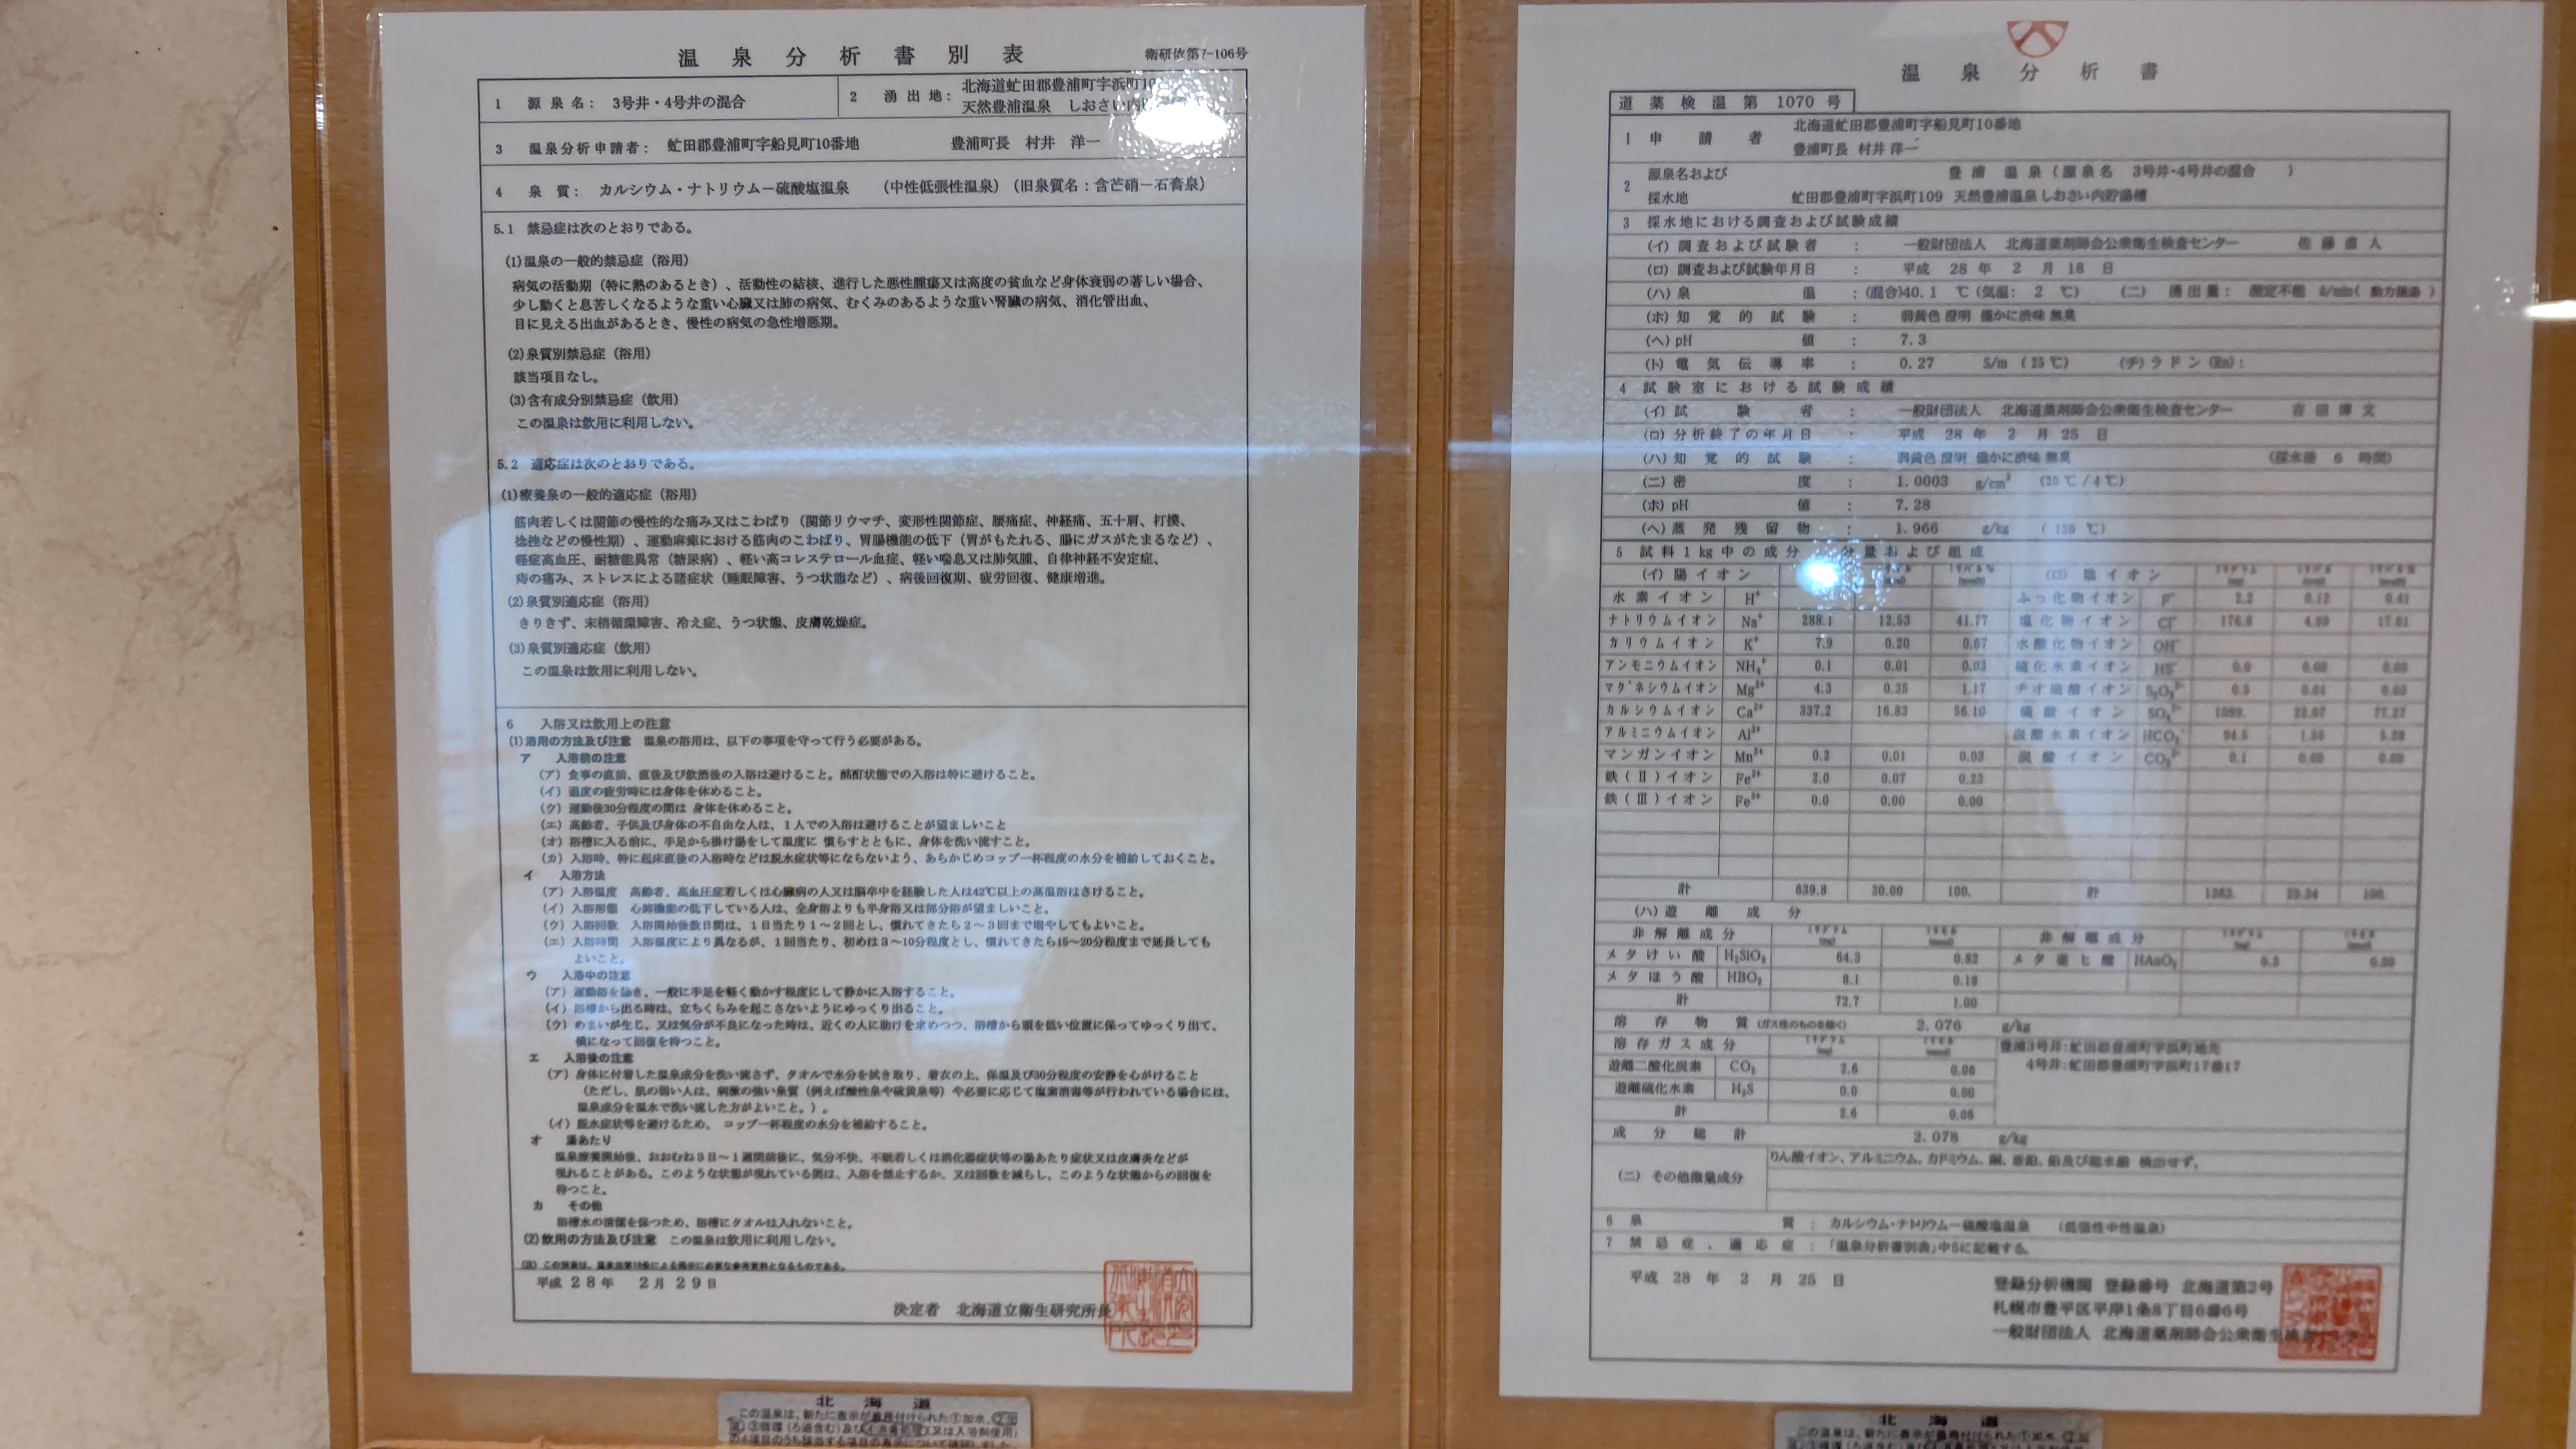 温泉分析書別表
衛研依第7-106号
1 源泉名: 3号井・4号井の混合
2 湧出地: 北海道虻田郡豊浦町字浜町10
天然豊浦温泉 しおさい内
3 温泉分析申請者: 虻田郡豊浦町字船見町10番地 豊浦町長 村井 洋一
4 泉質: カルシウム・ナトリウム－硫酸塩温泉 (中性低張性温泉) (旧泉質名:含芒硝－石膏泉)
5.1 禁忌症は次のとおりである。
(1)温泉の一般的禁忌症(浴用)
病気の活動期(特に熱のあるとき)、活動性の結核、進行した悪性腫瘍又は高度の貧血など身体衰弱の著しい場合、
少し動くと息苦しくなるような重い心臓又は肺の病気、むくみのあるような重い腎臓の病気、消化管出血、
目に見える出血があるとき、慢性の病気の急性増悪期。
(2)泉質別禁忌症(浴用)
該当項目なし。
(3)含有成分別禁忌症(飲用)
この温泉は飲用に利用しない。
5.2 適応症は次のとおりである。
(1)療養泉の一般的適応症(浴用)
筋肉若しくは関節の慢性的な痛み又はこわばり(関節リウマチ、変形性関節症、腰痛症、神経痛、五十肩、打撲、
捻挫などの慢性期)、運動麻痺における筋肉のこわばり、胃腸機能の低下(胃がもたれる、腸にガスがたまるなど)、
軽症高血圧、耐糖能異常(糖尿病)、軽い高コレステロール血症、軽い喘息又は肺気腫、自律神経不安定症、
痔の痛み、ストレスによる諸症状(睡眠障害、うつ状態など)、病後回復期、疲労回復、健康増進。
(2)泉質別適応症(浴用)
きりきず、末梢循環障害、冷え症、うつ状態、皮膚乾燥症。
(3)泉質別適応症(飲用)
この温泉は飲用に利用しない。
6 入浴又は飲用上の注意
(1)浴用の方法及び注意 温泉の浴用は、以下の事項を守って行う必要がある。
ア 入浴前の注意
(ア)食事の直前、直後及び飲酒後の入浴は避けること。酩酊状態での入浴は特に避けること。
(イ)過度の疲労時には身体を休めること。
(ウ)運動後30分程度の間は 身体を休めること。
(エ)高齢者、子供及び身体の不自由な人は、1人での入浴は避けることが望ましいこと
(オ)浴槽に入る前に、手足から掛け湯をして温度に 慣らすとともに、身体を洗い流すこと。
(カ)入浴時、特に起床直後の入浴時などは脱水症状等にならないよう、あらかじめコップ一杯程度の水分を補給しておくこと。
イ 入浴方法
(ア)入浴温度 高齢者、高血圧症若しくは心臓病の人又は脳卒中を経験した人は42℃以上の高温浴はさけること。
(イ)入浴形態 心肺機能の低下している人は、全身浴よりも半身浴又は部分浴が望ましいこと。
(ウ)入浴回数 入浴開始後数日間は、1日当たり1～2回とし、慣れてきたら2～3回まで増やしてもよいこと。
(エ)入浴時間 入浴温度により異なるが、1回当たり、初めは3～10分程度とし、慣れてきたら15～20分程度まで延長しても
よいこと。
ウ 入浴中の注意
(ア)運動浴を除き、一般に手足を軽く動かす程度にして静かに入浴すること。
(イ)浴槽から出る時は、立ちくらみを起こさないようにゆっくり出ること。
(ウ)めまいが生じ、又は気分が不良になった時は、近くの人に助けを求めつつ、浴槽から頭を低い位置に保ってゆっくり出て、
横になって回復を待つこと。
エ 入浴後の注意
(ア)身体に付着した温泉成分を洗い流さず、タオルで水分を拭き取り、着衣の上、保温及び30分程度の安静を心がけること
(ただし、肌の弱い人は、刺激の強い泉質(例えば酸性泉や硫黄泉等)や必要に応じて塩素消毒等が行われている場合には、
温泉成分を温水で洗い流した方がよいこと。)。
(イ)脱水症状等を避けるため、 コップ一杯程度の水分を補給すること。
オ 湯あたり
温泉療養開始後、おおむね3日～1週間前後に、気分不快、不眠若しくは消化器症状等の湯あたり症状又は皮膚炎などが
現れることがある。このような状態が現れている間は、入浴を禁止するか、又は回数を減らし、このような状態からの回復を
待つこと。
カ その他
浴槽水の清潔を保つため、浴槽にタオルは入れないこと。
(2)飲用の方法及び注意 この温泉は飲用に利用しない。
平成28年 2月29日
決定者 北海道立衛生研究所長
北海道
この温泉は、新たに表示が義務付けられた①加水、②加
温泉分析書
道薬検温第 1070 号
1 申請者 北海道虻田郡豊浦町字船見町10番地
豊浦町長 村井 洋一
2 源泉名および 豊浦温泉(源泉名 3号井・4号井の混合 )
採水地 虻田郡豊浦町字浜町109 天然豊浦温泉 しおさい内貯湯槽
3 採水地における調査および試験成績
(イ)調査および試験者 : 一般財団法人 北海道薬剤師会公衆衛生検査センター 佐藤直人
(ロ)調査および試験年月日 : 平成 28年 2月18日
(ハ)泉温 : (混合)40.1 ℃(気温: 2 ℃) (ニ) 湧出量: 測定不能
(ホ)知覚的試験 : 弱黄色 澄明 僅かに渋味 無臭
(ヘ)pH値 : 7.3
(ト)電気伝導率 : 0.27 S/m (25℃) (チ)ラドン(Rn):
4 試験室における試験成績
(イ)試験者 : 一般財団法人 北海道薬剤師会公衆衛生検査センター 吉田博文
(ロ)分析終了の年月日 : 平成 28年 2月25日
(ハ)知覚的試験 : 弱黄色 澄明 僅かに渋味 無臭 (採水後 6 時間)
(ニ)密度 : 1.0003 g/cm³ (20℃/4℃)
(ホ)pH値 : 7.28
(ヘ)蒸発残留物 : 1.966 g/kg
5 試料1kg中の成分 分量および組成
(イ)陽イオン (ロ)陰イオン
水素イオン H⁺ ふっ化物イオン F⁻ 2.2 0.12 0.41
ナトリウムイオン Na⁺ 288.1 12.53 41.77 塩化物イオン Cl⁻ 176.8 4.99
カリウムイオン K⁺ 7.9 0.20 0.67 水酸化物イオン OH⁻
アンモニウムイオン NH₄⁺ 0.1 0.01 0.03 硫化水素イオン HS⁻ 0.0 0.00 0.00
マグネシウムイオン Mg²⁺ 4.3 0.35 1.17 チオ硫酸イオン S₂O₃²⁻ 0.5 0.01 0.03
カルシウムイオン Ca²⁺ 337.2 16.83 56.10 硫酸イオン SO₄²⁻ 1089. 22.67 77.27
アルミニウムイオン Al³⁺ 炭酸水素イオン HCO₃⁻ 94.5 1.55 5.28
マンガンイオン Mn²⁺ 0.2 0.01 0.03 炭酸イオン CO₃²⁻ 0.1 0.00 0.00
鉄(Ⅱ)イオン Fe²⁺ 2.0 0.07 0.23
鉄(Ⅲ)イオン Fe³⁺ 0.0 0.00 0.00
計 639.8 30.00 100. 計 1363. 29.34 100.
(ハ)遊離成分
非解離成分 非解離成分
メタけい酸 H₂SiO₃ 64.3 0.82 メタ亜ヒ酸 HAsO₂ 0.3 0.00
メタほう酸 HBO₂ 8.1 0.18
計 72.7 1.00
溶存物質(ガス性のものを除く) 2.076 g/kg
溶存ガス成分
豊浦3号井:虻田郡豊浦町字浜町地先
遊離二酸化炭素 CO₂ 2.6 0.06 4号井:虻田郡豊浦町字浜町17番17
遊離硫化水素 H₂S 0.0 0.00
計 2.6 0.06
成分総計 2.078 g/kg
(ニ)その他微量成分 りん酸イオン、アルミニウム、カドミウム、銅、亜鉛、鉛及び総水銀 検出せず。
6 泉質 : カルシウム・ナトリウム－硫酸塩温泉 (低張性中性温泉)
7 禁忌症、適応症 : 「温泉分析書別表」中5に記載する。
平成 28年 2月25日
登録分析機関 登録番号 北海道第2号
札幌市豊平区平岸1条8丁目6番6号
一般財団法人 北海道薬剤師会公衆衛生検査
北海道